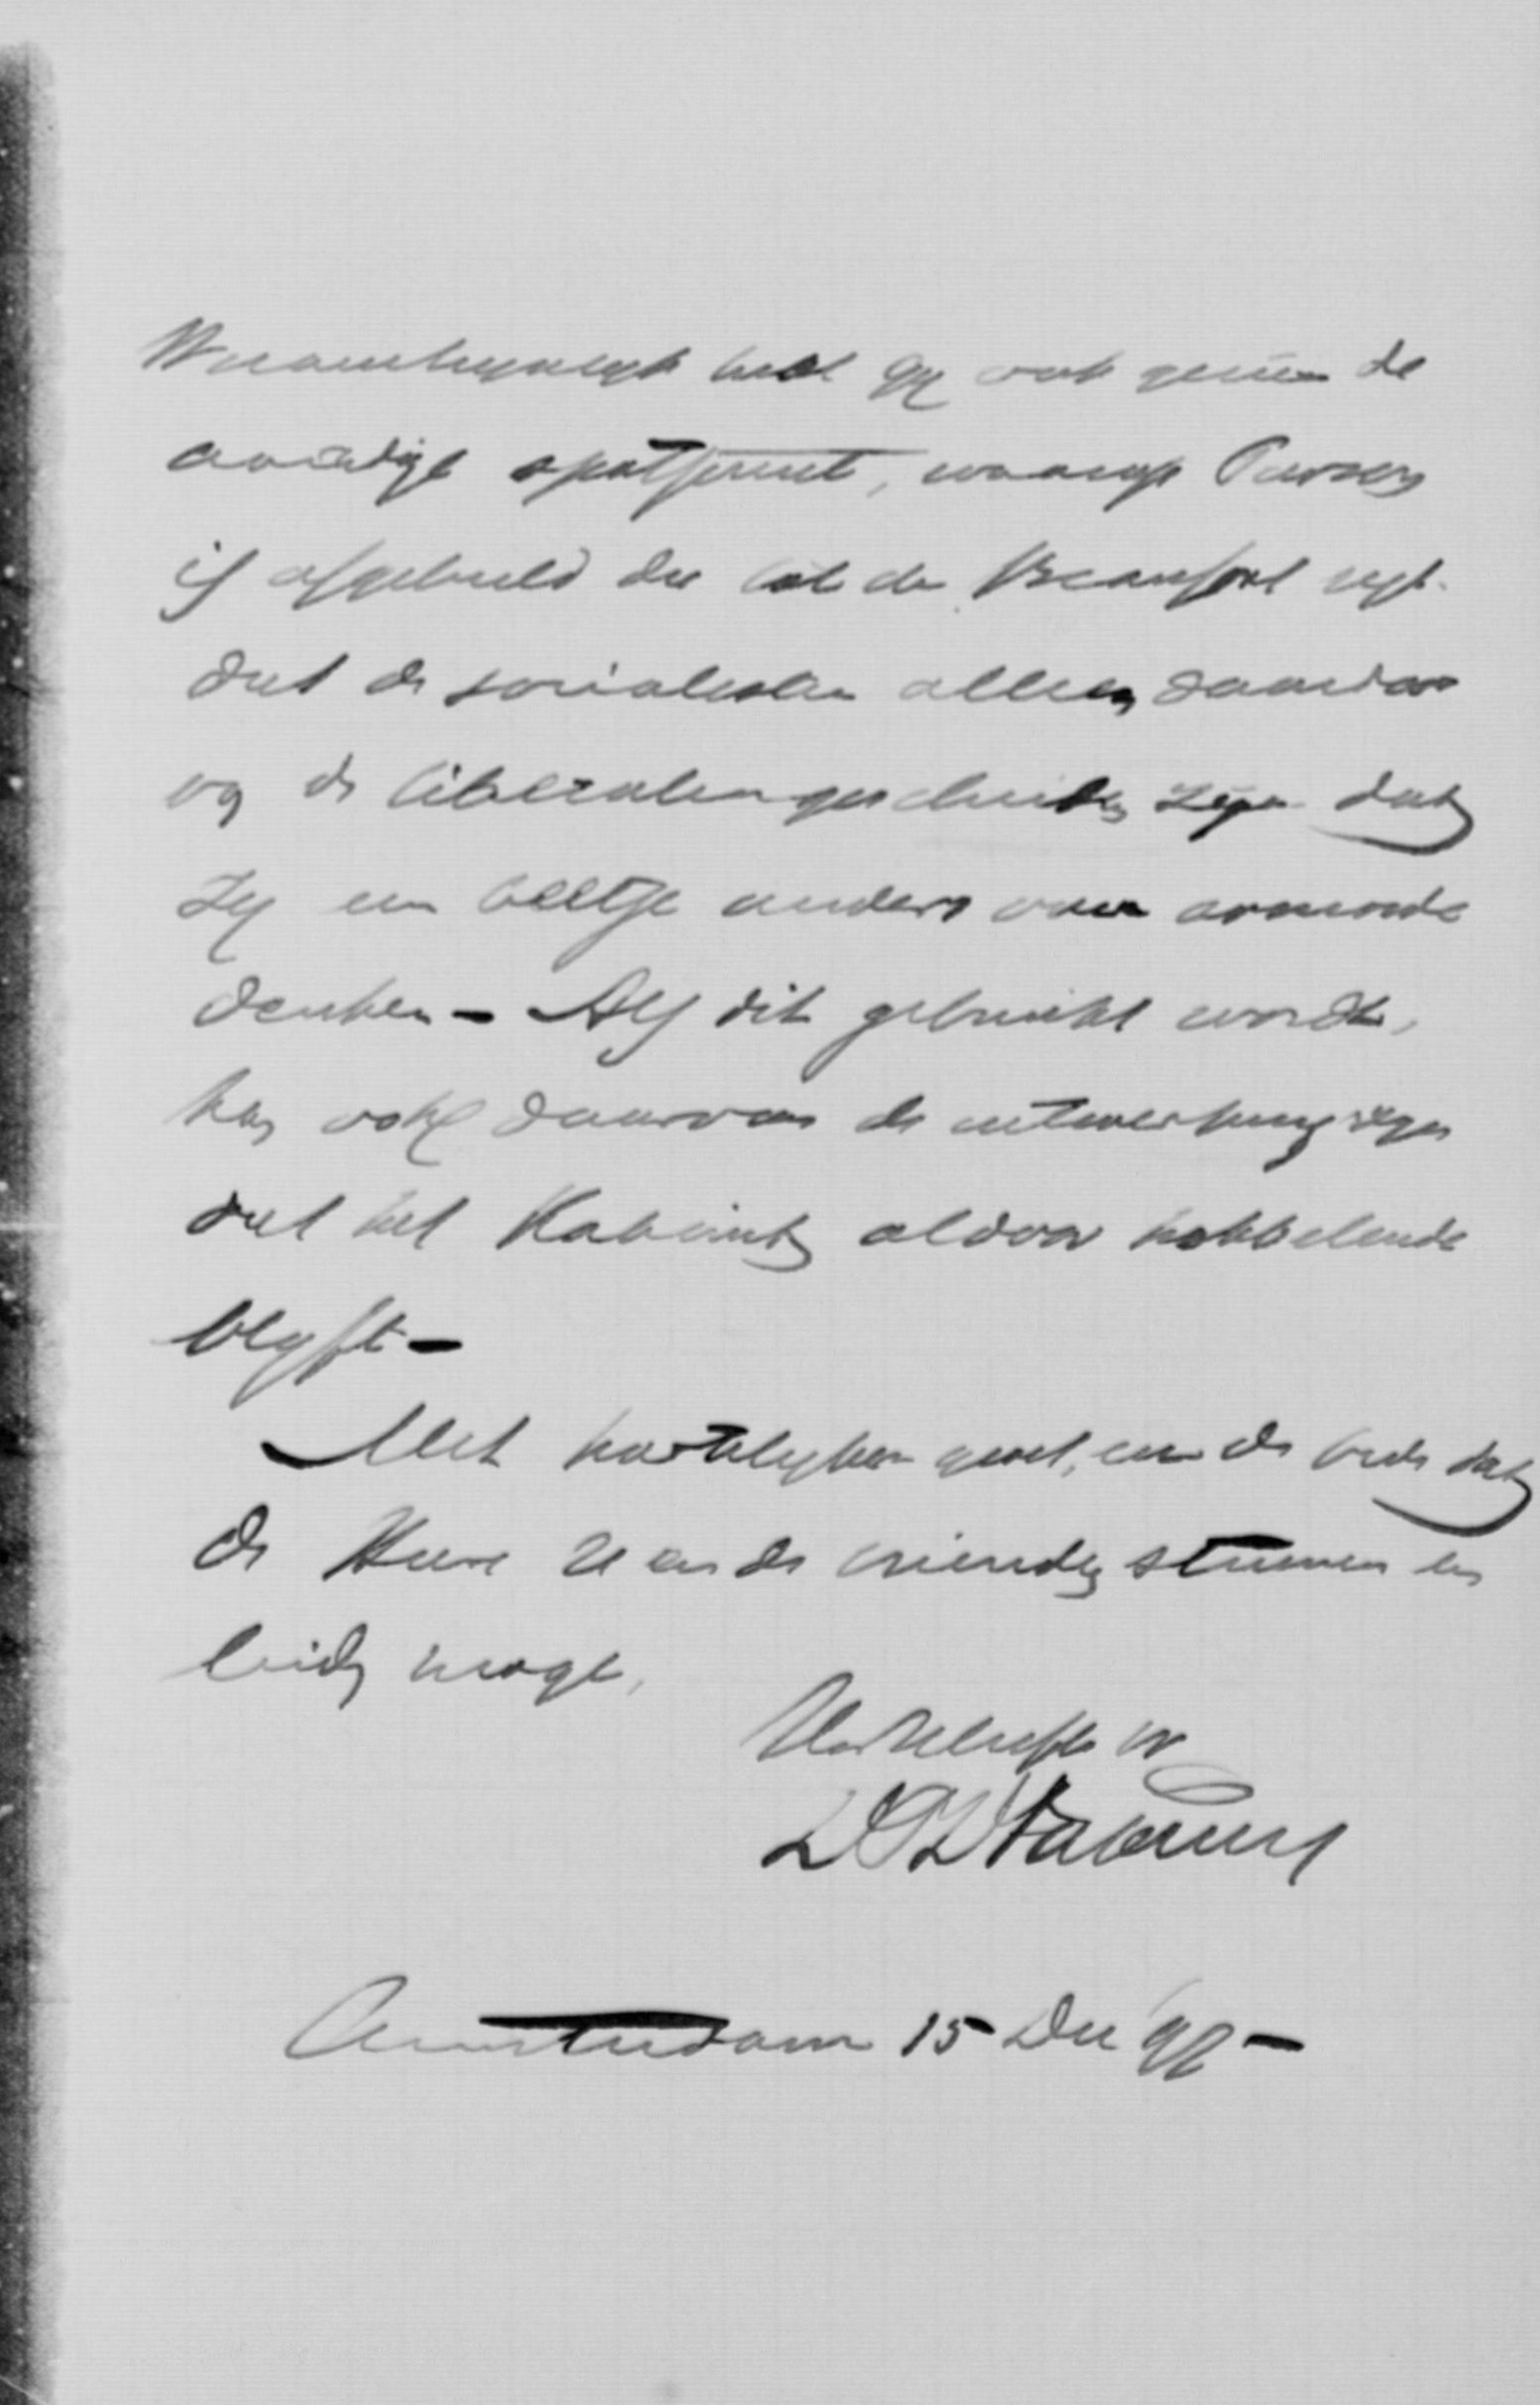 Waarschynlyk hebt gy ook gezien de
aardige spotprent, waarop Pierson
is afgebeeld die tot de Beaufort zegt
dat de socialisten alleen daardoor
van de liberalen gescheiden zyn dat
zy een beetje anders over armoede
denken - Als dit gebruikt wordt,
kan ook daarvan de uitwerking zyn
dat het Kabinet aldoor hobbelende
blyft -
Met hartelyken groet, en de bede dat
de Heere U en de vrienden steunen en
leiden moge,
Hartelijk
Amsterdam 15 Dec